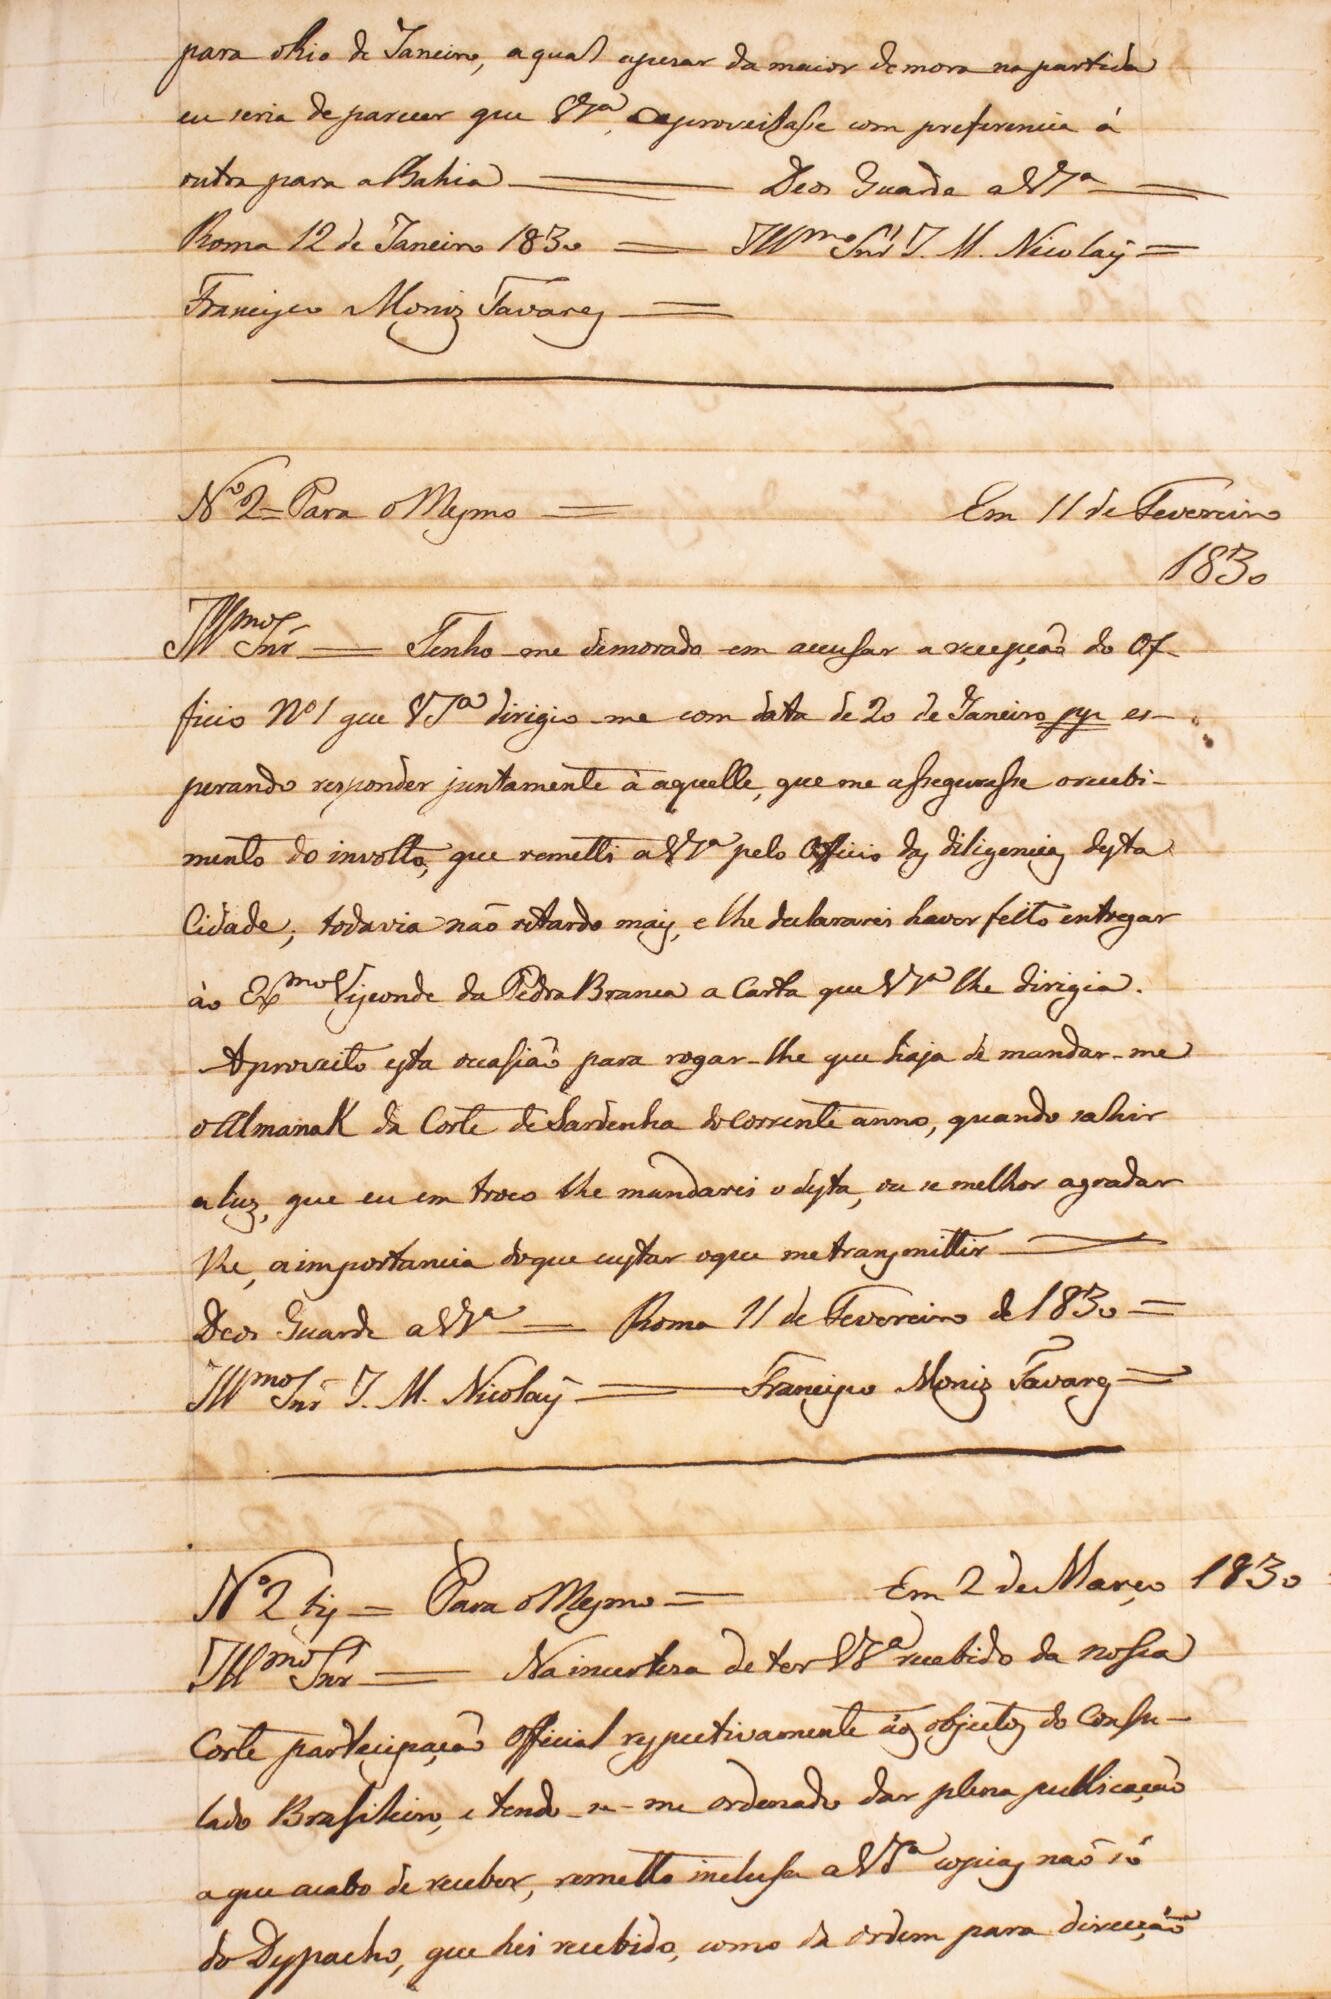 para o Rio de Janeiro, a qual apezar da maior demora na partida
eu seria de parecer que VSª aproveitasse com preferencia á
outra para a Bahia == Deos Guarde a VSª ==
Roma 12 de Janeiro 1830 == Illmo Snr J. M. Nicolaÿ =
Francisco Moniz Tavares ==
Nº 2 = Para o Mesmo == Em 11 de Fevereiro
1830
Illmo Snr == Tenho-me demorado em accusar a recepção do Of-
ficio Nº 1 que VSª dirigio-me com data de 20 de Janeiro pp. es-
perando responder juntamente à aquelle, que me assegurasse o recebi-
mento do involto, que remetti a VSª pelo Officio das diligencias desta
Cidade; todavia não retardo mais, e lhe declararei haver feito entregar
ào Exmo Visconde da Pedra Branca a Carta que VSª lhe dirigia.
Aproveito esta occasião para rogar-lhe que haja de mandar-me
o AlmanaK da Corte de Sardenha do corrente anno, quando sahir
a luz, que eu em troco lhe mandarei o desta, ou se melhor agradar
lhe, a importancia do que custar o que me transmittir ==
Deos Guarde a VSª == Roma 11 de Fevereiro de 1830 =
Illmo Snr J. M. Nicolaÿ == Francisco Moniz Tavares =
Nº 2 bis = Para o Mesmo = Em 2 de Março 1830
Illmo Snr == Na incerteza de ter VSª recebido da nossa
Corte participação Official respectivamente áos objectos do Consu-
lado Brasileiro, e tendo-se-me ordenado dar plena publicação
a que acabo de receber, remetto inclusa a VSª copias não só
do Despacho, que hei recebido, como da ordem para direcção